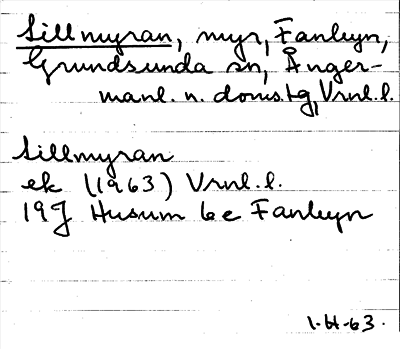 Sillmyran, myr, Fanbyn,
Grundsunda sn, Ånger-
manl. n. doms.tg, Vrnl. l.
Sillmyran
ek (1963) Vrnl. l.
19J Husum be Fanbyn